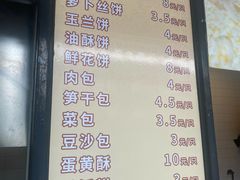 萝卜丝饼 8元/只
玉兰饼 3.5元/只
油酥饼 4元/只
鲜花饼 4元/只
肉包 8元/只
笋干包 4元/只
菜包 4.5元/只
豆沙包 3.5元/只
蛋黄酥 3元/只
10元/只
3元/只